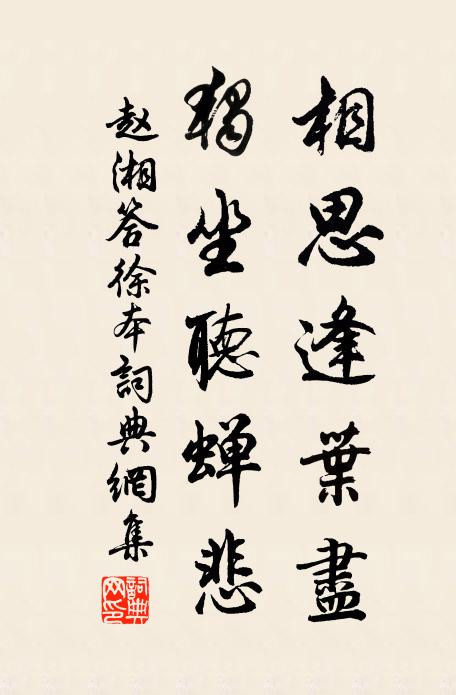 相思逢葉盡
獨坐聽蟬悲
赵湘答徐本詞典網集
詞典网印